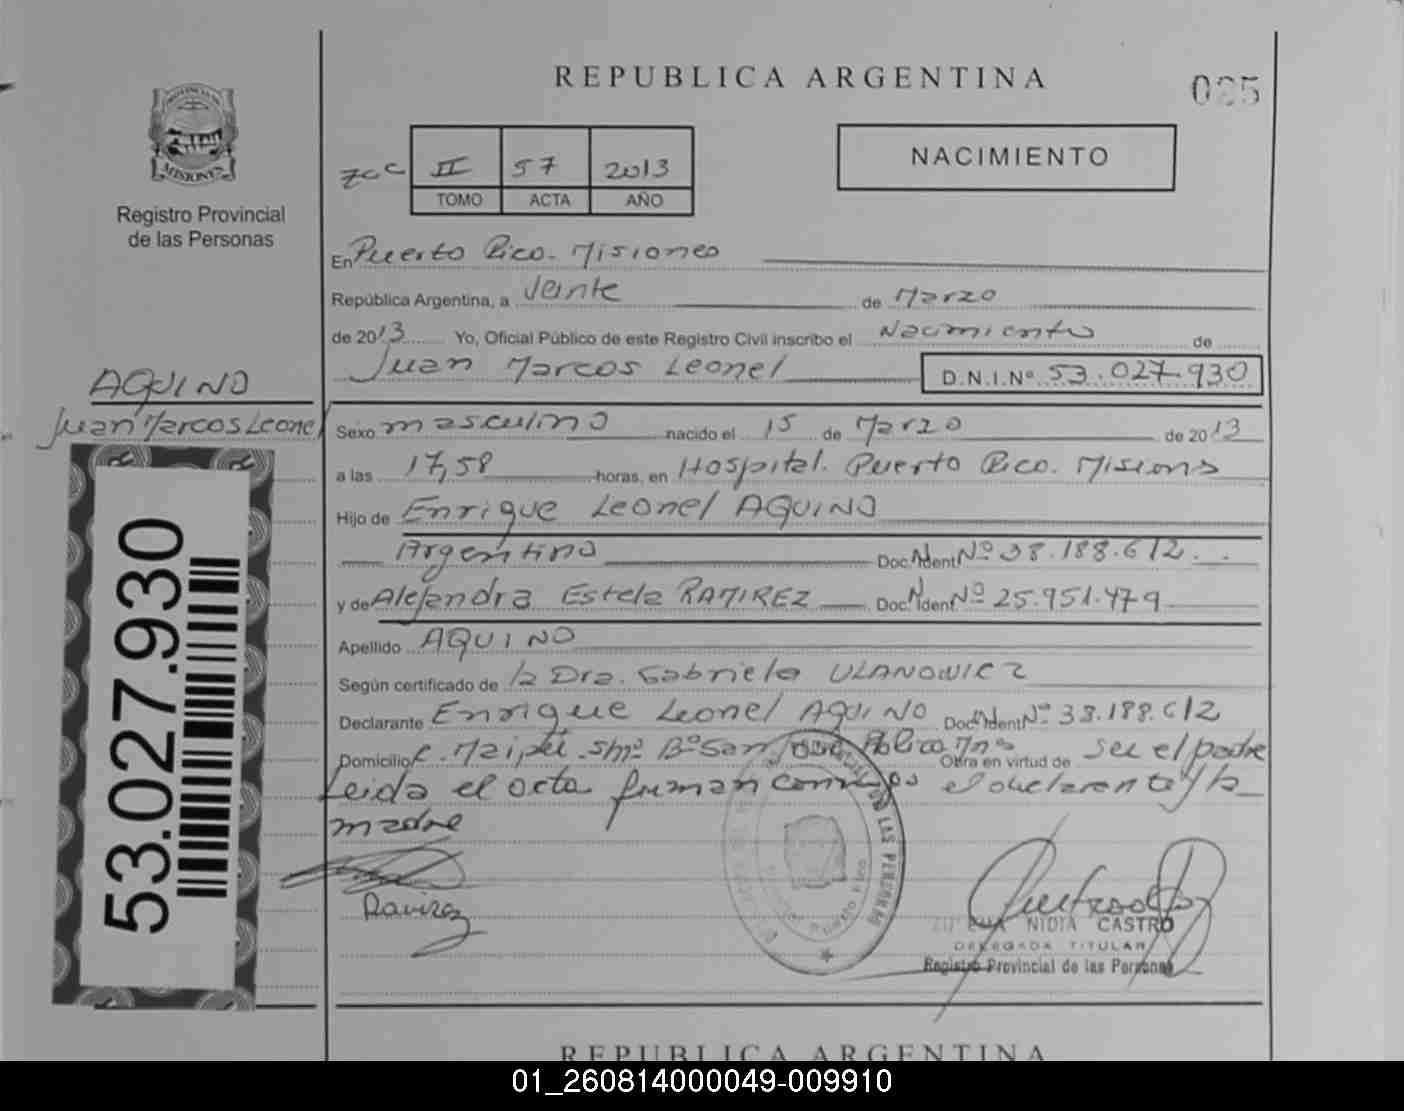 REPUBLICA ARGENTINA
025
MISIONES
Registro Provincial
de las Personas
zcc II 57 2013
TOMO ACTA AÑO
NACIMIENTO
En Puerto Rico. Misiones
República Argentina, a Veinte de Marzo
de 2013 Yo, Oficial Público de este Registro Civil inscribo el Nacimiento de
Juan Marcos Leonel D.N.I.Nº 53.027.930
AQUINO
Juan Marcos Leonel
Sexo masculino nacido el 15 de Marzo de 2013
a las 17,58 horas, en Hospital. Puerto Rico. Misions
Hijo de Enrique Leonel AQUINO
Argentino Doc. Ident Nº 38.188.612
y de Alejandra Estela RAMIREZ Doc. Ident Nº 25.951.479
Apellido AQUINO
Según certificado de la Dra. Gabriela ULANOWICZ
Declarante Enrique Leonel AQUINO Doc. Ident Nº 38.188.612
Domicilio C. Maipú s/nº Bº San José Pto Rico Mns Obra en virtud de ser el padre
Leida el acta firman conmigo el declarante y la
madre
Ramirez
NIDIA CASTRO
DELEGADA TITULAR
Registro Provincial de las Personas
53.027.930
DE LAS PERSONAS
REPUBLICA ARGENTINA
01_260814000049-009910